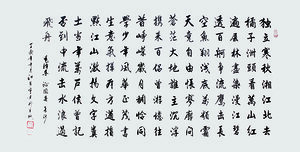 獨立寒秋湘江北去
橘子洲頭看萬山紅
遍層林盡染漫江碧
透百舸爭流鷹擊長
空魚翔淺底萬類霜
天競自由悵寥廓問
蒼茫大地誰主沉浮
攜來百侶曾遊憶往
昔崢嶸歲月稠恰同
學少年風華正茂書
生意氣揮斥方遒指
點江山激揚文字糞
土當年萬戶侯曾記
否到中流擊水浪遏
飛舟
毛澤東詞沁園春長沙